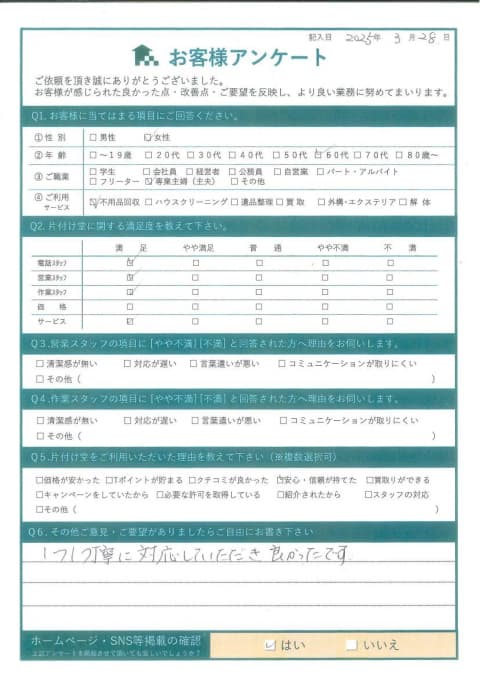 記入日 2025年 3月28日
お客様アンケート
ご依頼を頂き誠にありがとうございました。
お客様が感じられた良かった点・改善点・ご要望を反映し、より良い業務に努めてまいります。
Q1.お客様に当てはまる項目にご回答ください。
①性別 □男性 ☑女性
②年齢 □～19歳 □20代 □30代 □40代 □50代 ☑60代 □70代 □80歳～
③ご職業 □学生 □会社員 □経営者 □公務員 □自営業 □パート・アルバイト
□フリーター ☑専業主婦（主夫） □その他
④ご利用サービス ☑不用品回収 □ハウスクリーニング □遺品整理 □買取 □外構・エクステリア □解体
Q2.片付け堂に関する満足度を教えて下さい。
満足 やや満足 普通 やや不満 不満
電話ｽﾀｯﾌ ☑ □ □ □ □
営業ｽﾀｯﾌ ☑ □ □ □ □
作業ｽﾀｯﾌ ☑ □ □ □ □
価格 □ □ □ □ □
サービス ☑ □ □ □ □
Q3.営業スタッフの項目に[やや不満][不満]と回答された方へ理由をお伺いします。
□清潔感が無い □対応が遅い □言葉遣いが悪い □コミュニケーションが取りにくい
□その他（ ）
Q4.作業スタッフの項目に[やや不満][不満]と回答された方へ理由をお伺いします。
□清潔感が無い □対応が遅い □言葉遣いが悪い □コミュニケーションが取りにくい
□その他（ ）
Q5.片付け堂をご利用いただいた理由を教えて下さい（※複数選択可）
□価格が安かった □Tポイントが貯まる □クチコミが良かった ☑安心・信頼が持てた □買取りができる
□キャンペーンをしていたから □必要な許可を取得している □紹介されたから □スタッフの対応
□その他（ ）
Q6.その他ご意見・ご要望がありましたらご自由にお書き下さい
1つ1つ丁寧に対応していただき良かったです
ホームページ・SNS等掲載の確認 ☑はい □いいえ
上記アンケートを掲載させて頂いても宜しいでしょうか？